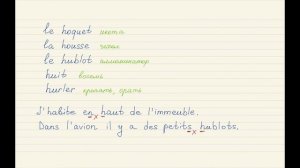 le hoquet икота
la housse чехол
le hublot иллюминатор
huit восемь
hurler кричать, орать
J'habite en haut de l'immeuble.
Dans l'avion il y a des petits hublots.